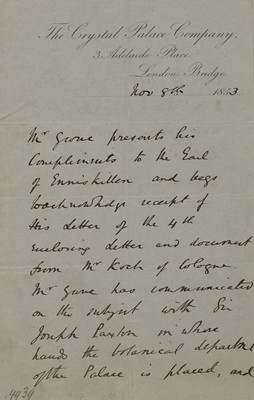 The Crystal Palace Company,
3, Adelaide Place,
London Bridge
Nov 8th 1853
Mr Grove presents his
Compliments to the Earl
of Enniskillen and begs
to acknowledge receipt of
His Letter of the 4th
enclosing Letter and document
from Mr Koch of Cologne
Mr Grove has communicated
on the subject with Sir
Joseph Paxton in whose
hands the botanical department
of the Palace is placed, and
4939